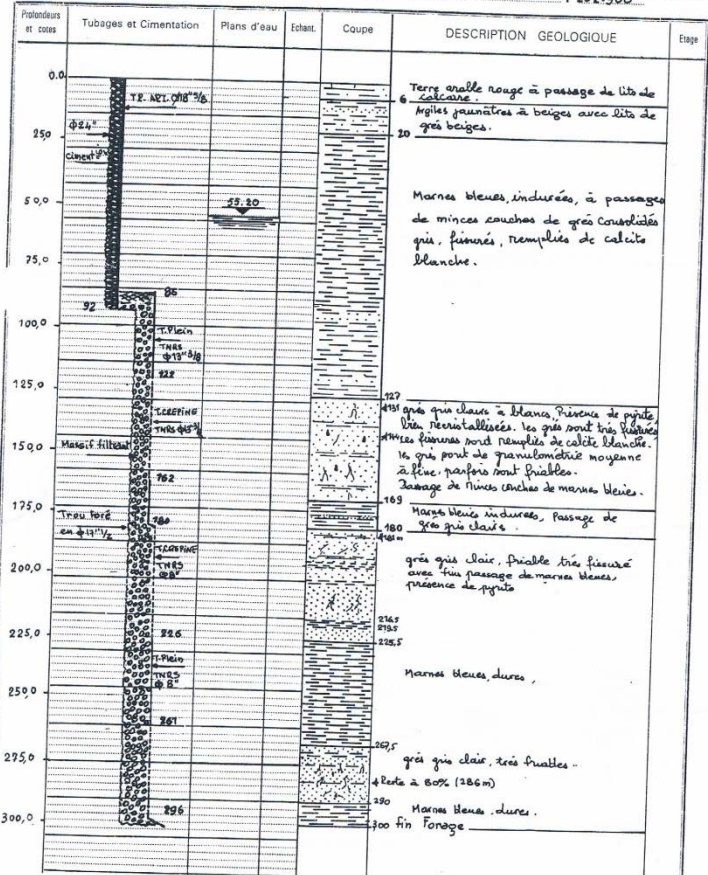 1 202.900
Profondeurs
et cotes
Tubages et Cimentation
Plans d'eau
Echant.
Coupe
DESCRIPTION GEOLOGIQUE
Etage
0.0
250
50,0
75,0
100,0
125,0
150,0
175,0
200,0
225,0
250,0
275,0
300,0
T.P. API. Ø18" 5/8
Ø24"
cimenté
86
92
T.Plein
TNRS
Ø13" 3/8
122
T.CREPINE
TNRS
Massif filtrant
162
180
Trou foré
en Ø17"1/2
T.CREPINE
TNRS
Ø8"
226
T.Plein
TNRS
Ø8"
261
296
55.20
6
20
127
131
144
169
180
216,5
219,5
225,5
267,5
290
300
Terre arable rouge à passage de lits de
calcaire.
Argiles jaunâtres à beiges avec lits de
grés beiges.
Marnes bleues, indurées, à passages
de minces couches de grés consolidés
gris, fissurés, remplies de calcite
blanche.
grés gris clairs à blancs, Présence de pyrite
bien recristallisées. les grés sont très fissurés
les fissures sont remplies de calcite blanche.
les grés sont de granulométrie moyenne
à fine, parfois sont friables.
Passage de minces couches de marnes bleues.
Marnes bleues indurées, Passage de
gres gris clairs.
grés gris clair, friable très fissuré
avec fins passage de marnes bleues,
présence de pyrite
Marnes bleues, dures,
grés gris clair, très friables -
Perte à 80% (286m)
Marnes bleues, dures.
fin Forage